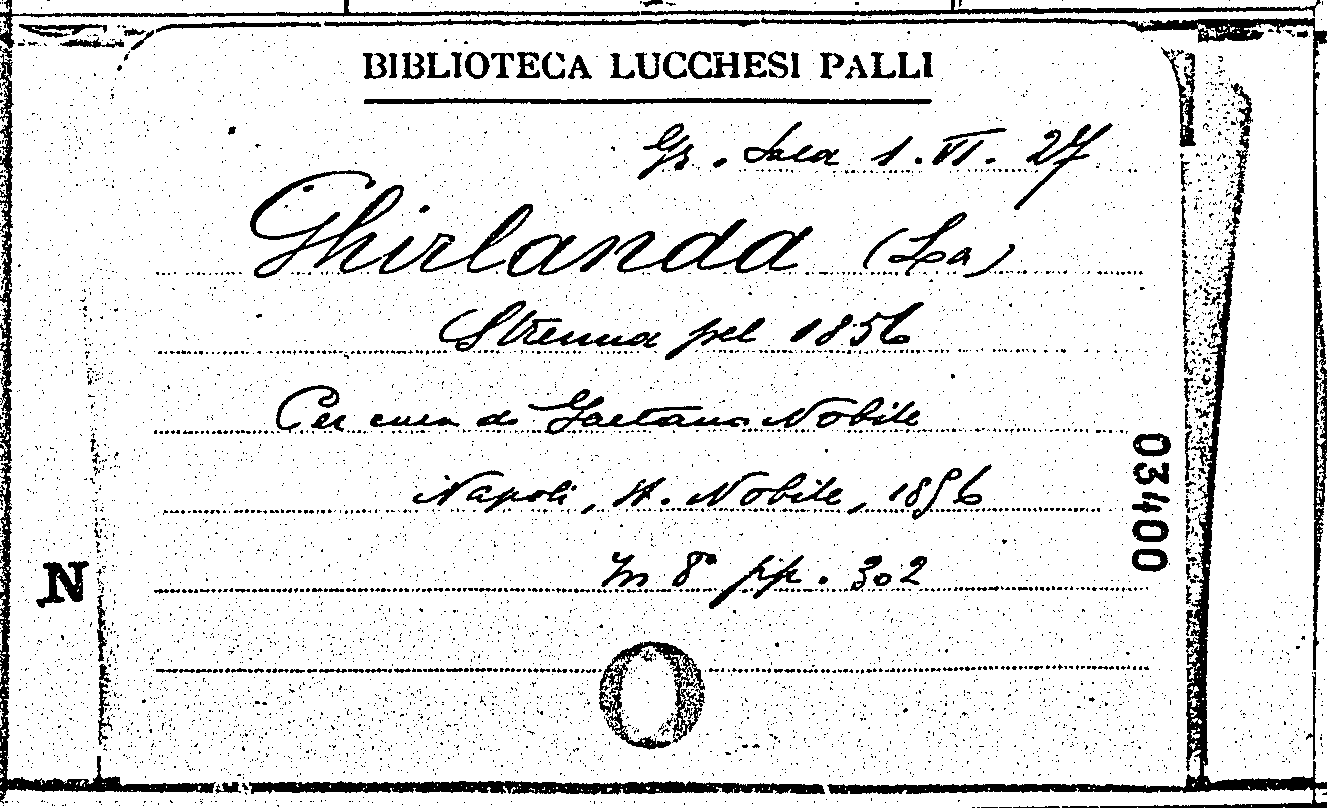 BIBLIOTECA LUCCHESI PALLI
Gr. Sala 1. VI. 27
Ghirlanda (La)
Strenna pel 1856
Per cura di Gaetano Nobile
Napoli, St. Nobile, 1856
In 8° pp. 302
03400
N